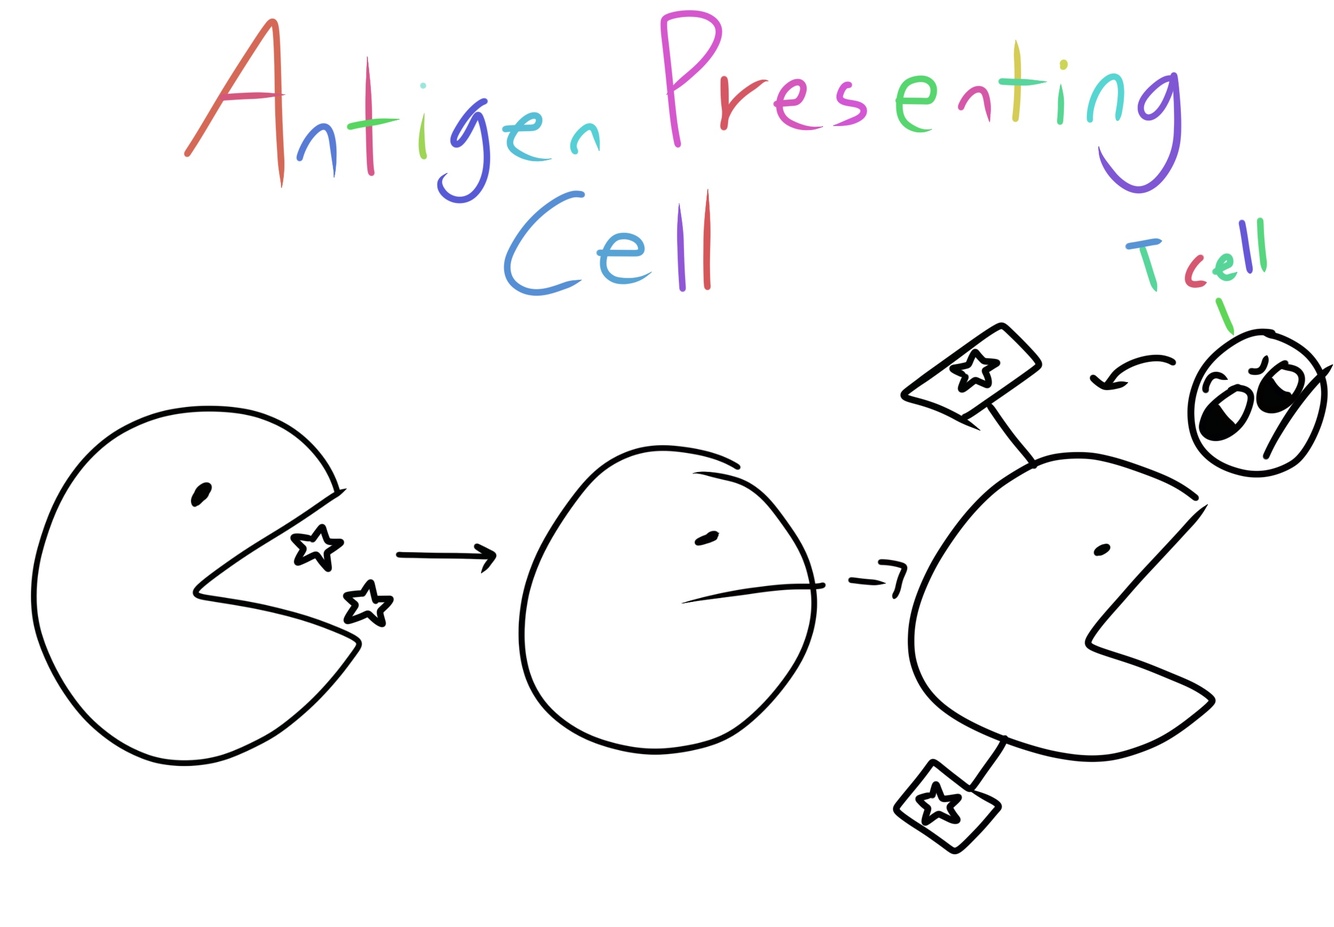 Antigen Presenting
Cell
T cell